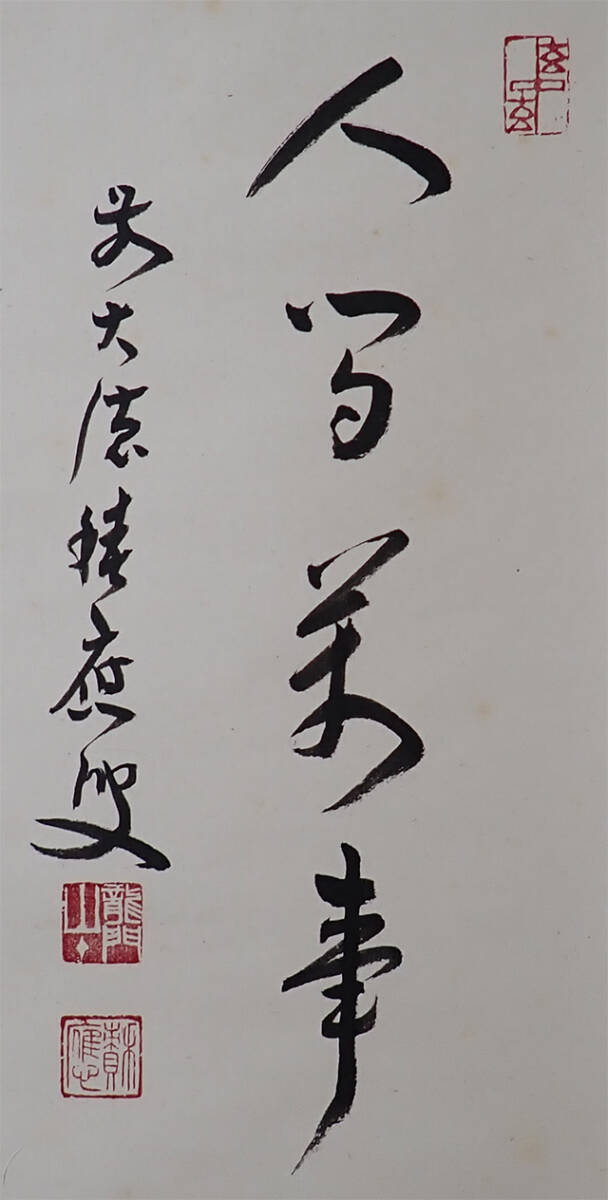 人間萬事
前大徳積應叟
龍門山
積應